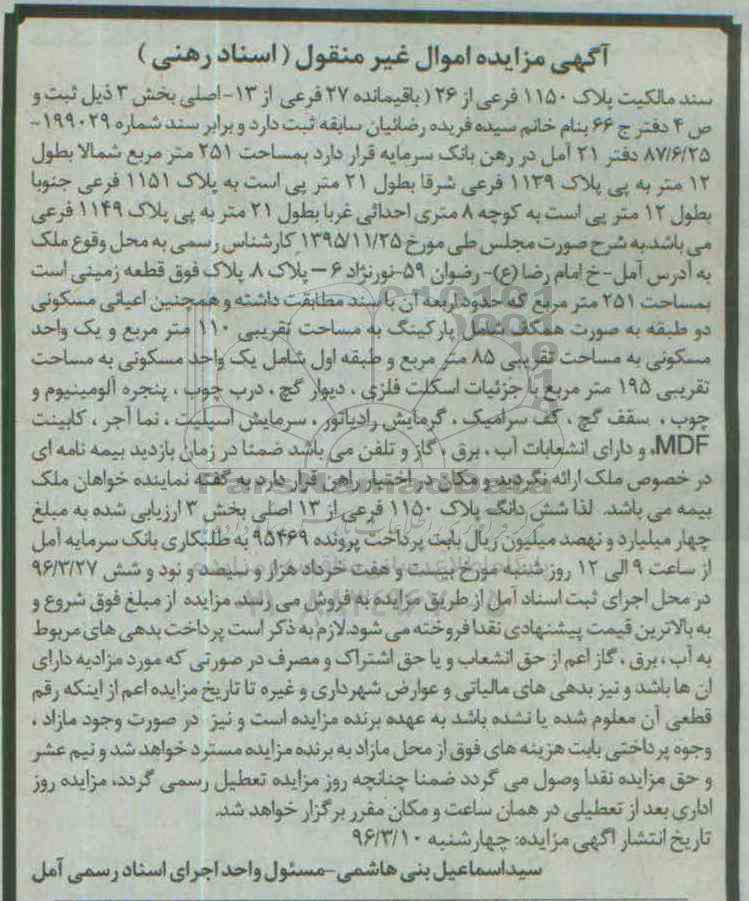 آگهی مزایده اموال غیر منقول ( اسناد رهنی )
سند مالکیت پلاک ۱۱۵۰ فرعی از ۲۶ ( باقیمانده ۲۷ فرعی از ۱۳- اصلی بخش ۳ ذیل ثبت و
ص ۴ دفتر ج ۶۶ بنام خانم سیده فریده رضائیان سابقه ثبت دارد و برابر سند شماره ۱۹۹۰۲۹-
۸۷/۶/۲۵ دفتر ۲۱ آمل در رهن بانک سرمایه قرار دارد بمساحت ۲۵۱ متر مربع شمالا بطول
۱۲ متر به پی پلاک ۱۱۳۹ فرعی شرقا بطول ۲۱ متر پی است به پلاک ۱۱۵۱ فرعی جنوبا
بطول ۱۲ متر پی است به کوچه ۸ متری احداثی غربا بطول ۲۱ متر به پی پلاک ۱۱۴۹ فرعی
می باشد.به شرح صورت مجلس طی مورخ ۱۳۹۵/۱۱/۲۵ کارشناس رسمی به محل وقوع ملک
به آدرس آمل-خ امام رضا (ع)- رضوان ۵۹-نورنژاد ۶ – پلاک ۸. پلاک فوق قطعه زمینی است
بمساحت ۲۵۱ متر مربع که حدود اربعه آن با سند مطابقت داشته و همچنین اعیانی مسکونی
دو طبقه به صورت همکف شامل پارکینگ به مساحت تقریبی ۱۱۰ متر مربع و یک واحد
مسکونی به مساحت تقریبی ۸۵ متر مربع و طبقه اول شامل یک واحد مسکونی به مساحت
تقریبی ۱۹۵ متر مربع با جزئیات اسکلت فلزی ، دیوار گچ ، درب چوب ، پنجره آلومینیوم و
چوب ، سقف گچ ، کف سرامیک ، گرمایش رادیاتور ، سرمایش اسپلیت ، نما آجر ، کابینت
MDF، و دارای انشعابات آب ، برق ، گاز و تلفن می باشد ضمنا در زمان بازدید بیمه نامه ای
در خصوص ملک ارائه نگردید و مکان در اختیار راهن قرار دارد به گفته نماینده خواهان ملک
بیمه می باشد. لذا شش دانگ پلاک ۱۱۵۰ فرعی از ۱۳ اصلی بخش ۳ ارزیابی شده به مبلغ
چهار میلیارد و نهصد میلیون ریال بابت پرداخت پرونده ۹۵۴۶۹ به طلبکاری بانک سرمایه آمل
از ساعت ۹ الی ۱۲ روز شنبه مورخ بیست و هفت خرداد هزار و سیصد و نود و شش ۹۶/۳/۲۷
در محل اجرای ثبت اسناد آمل از طریق مزایده به فروش می رسد. مزایده از مبلغ فوق شروع و
به بالاترین قیمت پیشنهادی نقدا فروخته می شود.لازم به ذکر است پرداخت بدهی های مربوط
به آب ، برق ، گاز اعم از حق انشعاب و یا حق اشتراک و مصرف در صورتی که مورد مزادیه دارای
ان ها باشد و نیز بدهی های مالیاتی و عوارض شهرداری و غیره تا تاریخ مزایده اعم از اینکه رقم
قطعی آن معلوم شده یا نشده باشد به عهده برنده مزایده است و نیز در صورت وجود مازاد ،
وجوه پرداختی بابت هزینه های فوق از محل مازاد به برنده مزایده مسترد خواهد شد و نیم عشر
و حق مزایده نقدا وصول می گردد ضمنا چنانچه روز مزایده تعطیل رسمی گردد، مزایده روز
اداری بعد از تعطیلی در همان ساعت و مکان مقرر برگزار خواهد شد.
تاریخ انتشار اگهی مزایده: چهارشنبه ۹۶/۳/۱۰
سیداسماعیل بنی هاشمی-مسئول واحد اجرای اسناد رسمی آمل